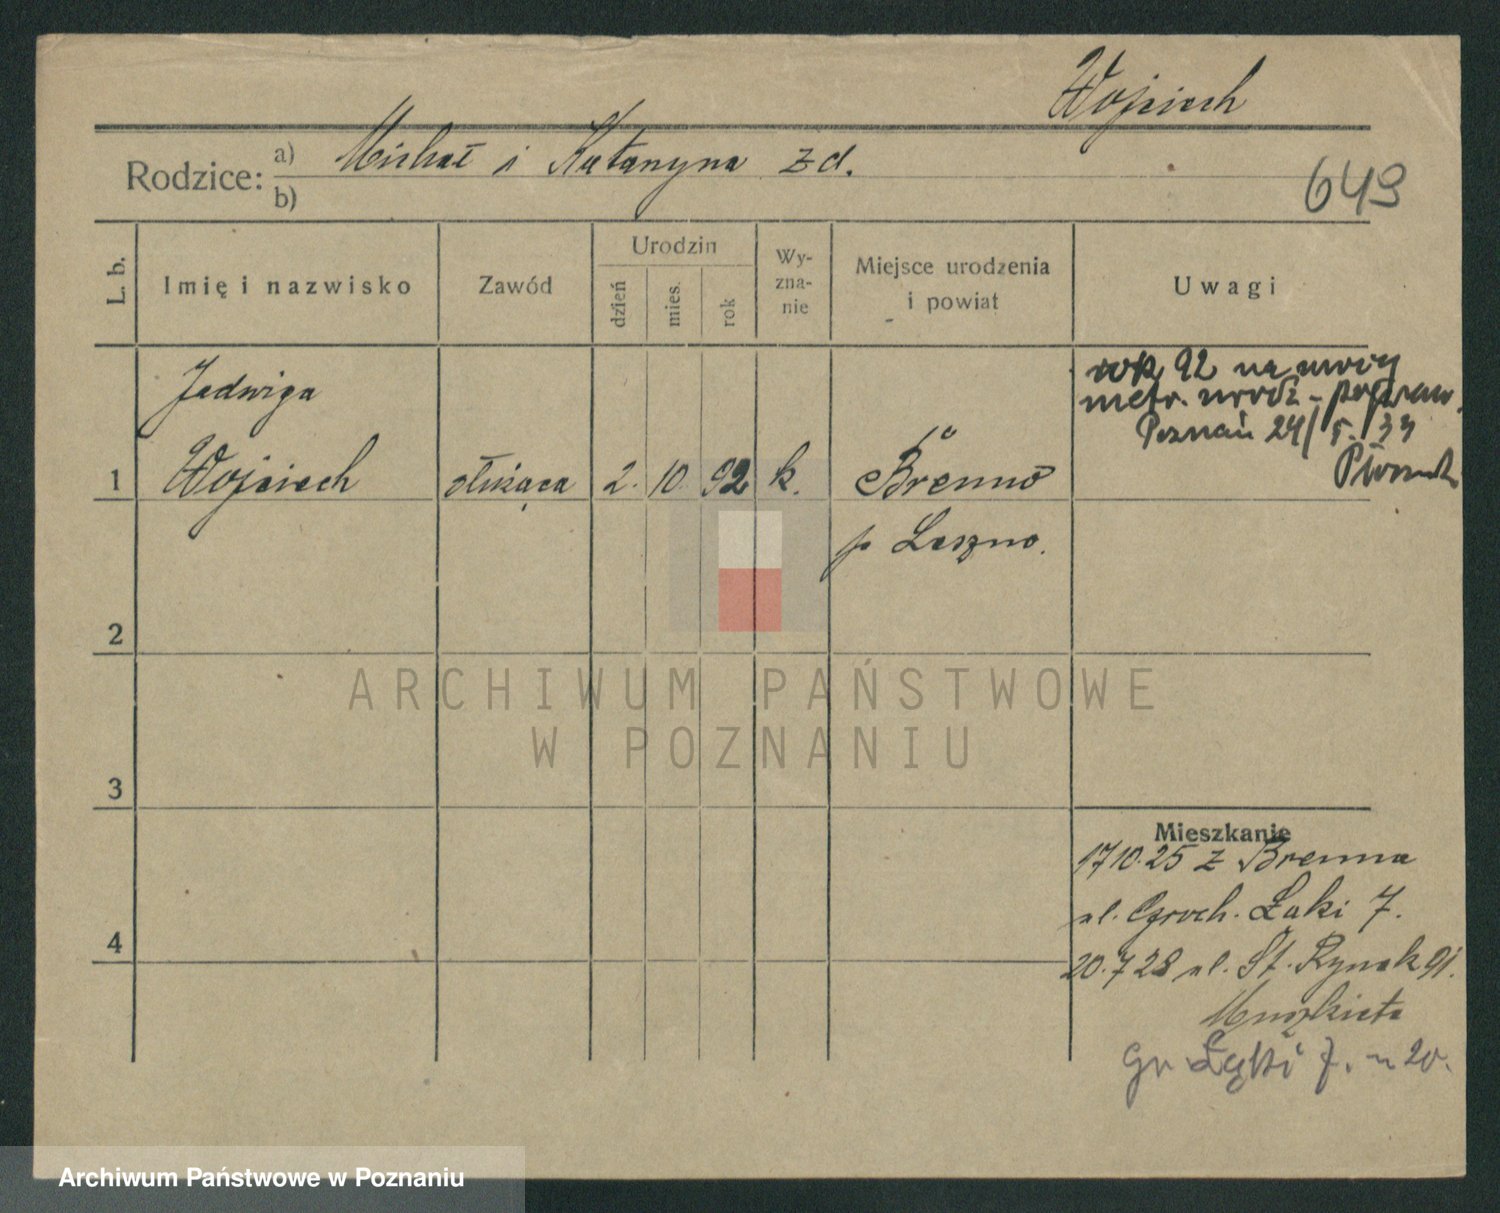 Wojciech
Rodzice: a) Michał i Katarzyna zd.
b)
649
L. b.
Imię i nazwisko
Zawód
Urodzin
dzień
mies.
rok
Wy-
zna-
nie
Miejsce urodzenia
i powiat
Uwagi
Jadwiga
1 Wojciech służąca 2. 10. 92 k. Brenno
p Leszno.
rok 92 na mocy
metr. urodz. - popraw.
Poznań 24/5. 33
2
3
4
Mieszkanie
17 10. 25 z Brenna
ul. Groch. Łąki 7.
20. 7 28 ul. St. Rynek 91.
Muszkieta
Gr Łąki 7. m 20.
ARCHIWUM PAŃSTWOWE
W POZNANIU
Archiwum Państwowe w Poznaniu